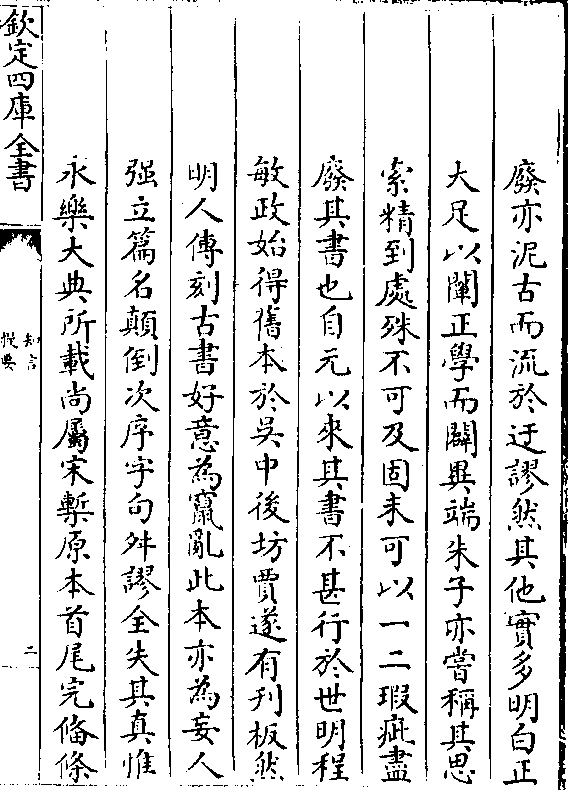 廢亦泥古而流於迂謬然其他實多明白正
大足以闡正學而闢異端朱子亦嘗稱其思
索精到處殊不可及固未可以一二瑕疵盡
廢其書也自元以來其書不甚行於世明程
敏政始得舊本於吳中後坊賈遂有刊板然
明人傳刻古書好意為竄亂此本亦為妄人
强立篇名顛倒次序字句舛謬全失其真惟
永樂大典所載尚屬宋槧原本首尾完備條
欽定四庫全書
知言
提要
二